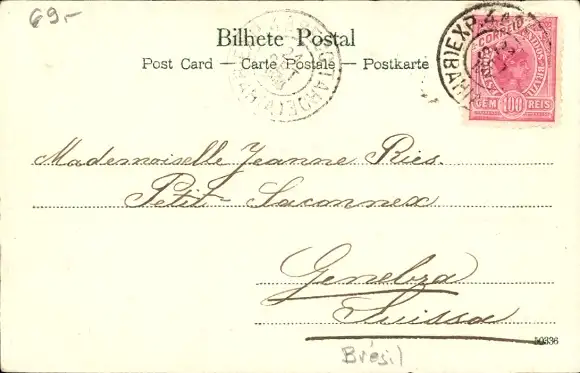 69.-
Bilhete Postal
Post Card — Carte Postale — Postkarte
CORREIO
CEM 100 REIS
Mademoiselle Jeanne Ries.
Petit-Saconnex
Genebra
Suissa
50336
Brésil